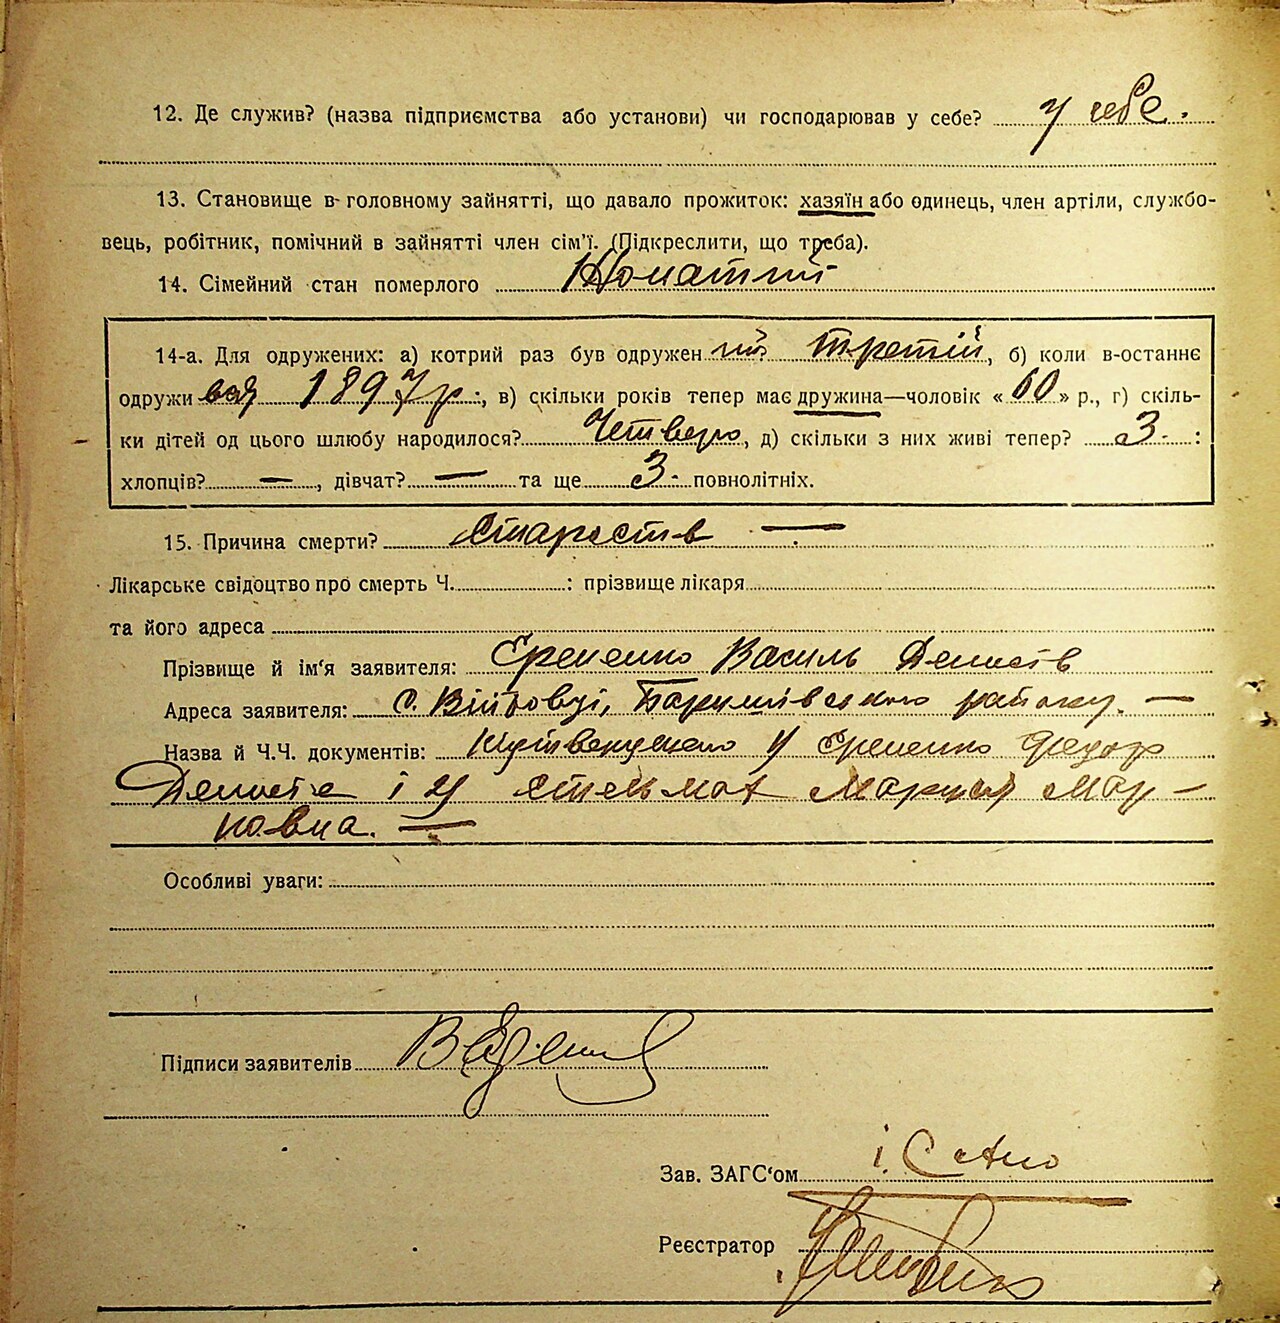 12. Де служив? (назва підприємства або установи) чи господарював у себе? у себе.
13. Становище в головному зайнятті, що давало прожиток: хазяїн або одинець, член артіли, службо-
вець, робітник, помічний в зайнятті член сім'ї. (Підкреслити, що треба).
14. Сімейний стан померлого Жонатий
14-а. Для одружених: а) котрий раз був одружен ий? третій, б) коли в-останнє
одружи вся 1897 р., в) скільки років тепер має дружина—чоловік «60» р., г) скіль-
ки дітей од цього шлюбу народилося? Четверо, д) скільки з них живі тепер? 3 :
хлопців? —, дівчат? — та ще 3 повнолітніх.
15. Причина смерти? Старость —
Лікарське свідоцтво про смерть Ч. : прізвище лікаря
та його адреса
Прізвище й ім'я заявителя: Єременко Василь Денисів
Адреса заявителя: с. Війтовці, Баришівського району. —
Назва й Ч.Ч. документів: у Єременко Федор
Денисів і у Стельмах Мар-
ковна. —
Особливі уваги:
Підписи заявителів
Зав. ЗАГС'ом
Реєстратор